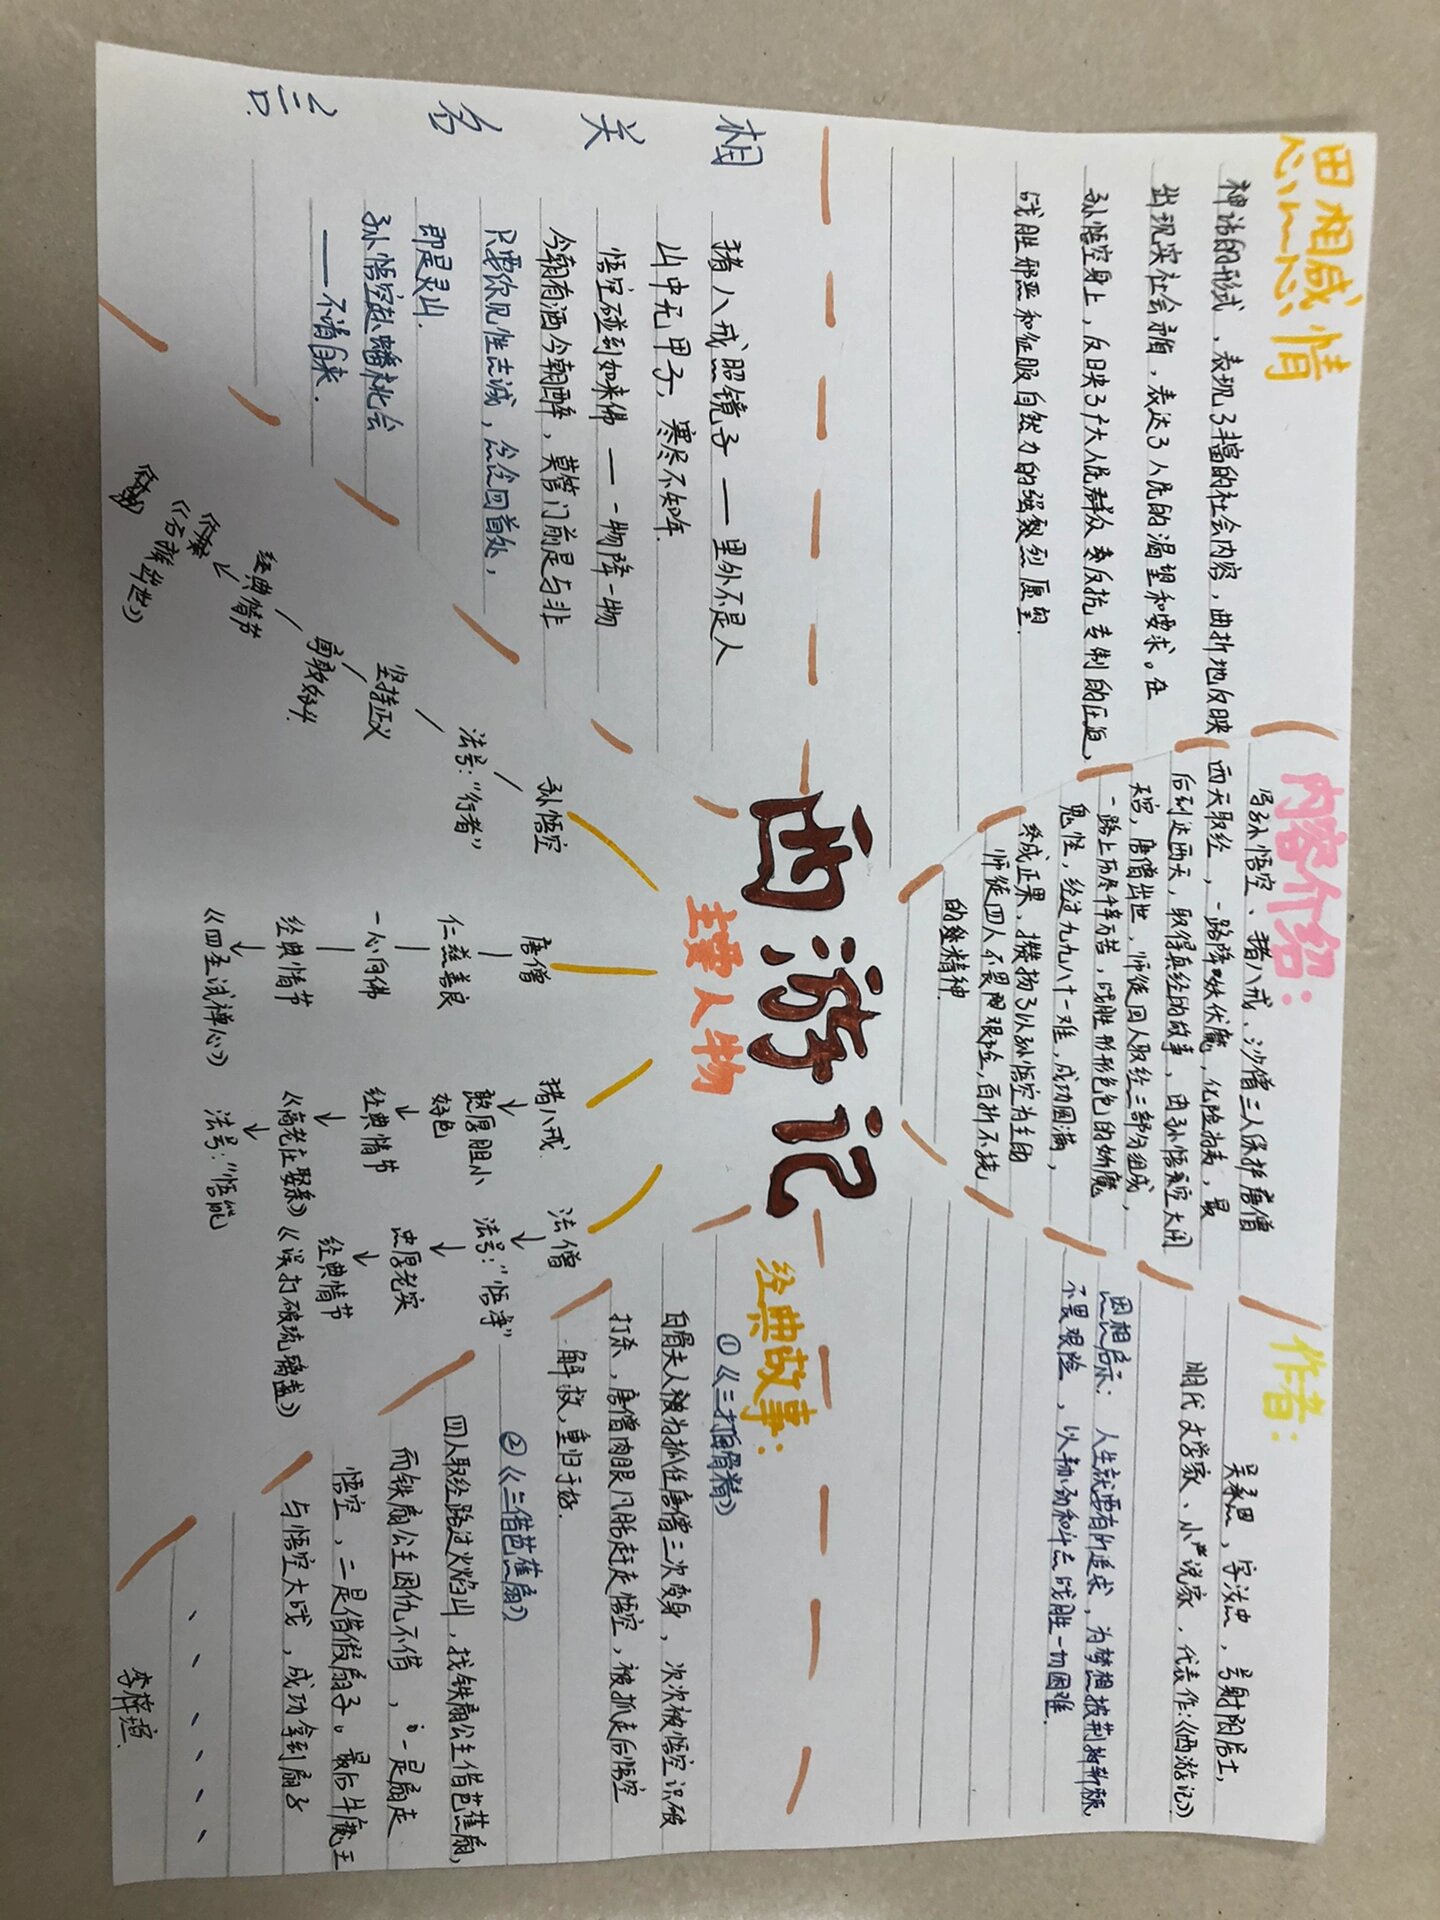 思想感情
神话的形式，表现了丰富的社会内容，曲折地反映
出现实社会矛盾，表达了人民的渴望和要求。在
孙悟空身上，反映了广大人民群众要反抗专制的压迫，
战胜邪恶和征服自然力的强烈愿望.
内容介绍：
写孙悟空、猪八戒、沙僧三人保护唐僧
西天取经，一路降妖伏魔，化险为夷，最
后到达西天，取得真经的故事，由孙悟空大闹
天宫，唐僧出世，师徒四人取经三部分组成，
一路上历尽千辛万苦，战胜形形色色的妖魔
鬼怪，经过九九八十一难，成功圆满，
终成正果，攒扬了以孙悟空为主的
师徒四人不畏艰险，百折不挠
的精神
作者：
吴承恩，字汝忠，号射阳居士，
明代文学家、小说家，代表作：《西游记》
思想启示：人生就要有所追求，为梦想披荆斩棘
不畏艰险，以勤劳和斗志战胜一切困难.
西游记
主要人物
相关名言
猪八戒照镜子——里外不是人
山中无甲子，寒尽不知年.
悟空碰到如来佛——一物降一物
今朝有酒今朝醉，莫管门前是与非
只要你见性志诚，念念回首处，
即是灵山.
孙悟空赴蟠桃会
——不请自来.
孙悟空
法号：“行者”
坚持正义
勇敢好斗
经典情节
《石猴出世》
唐僧
仁慈善良
一心向佛
经典情节
《四圣试禅心》
猪八戒
憨厚胆小
好色
经典情节
《高老庄娶亲》
法号：“悟能
法僧
法号：“悟净”
忠厚老实
经典情节
《误打破琉璃盏》
经典故事：
①《三打白骨精》
白骨夫人被为抓住唐僧三次变身，次次被悟空识破
打杀，唐僧肉眼凡胎赶走悟空，被抓走后悟空
解救，重归于好.
②《三借芭蕉扇》
四人取经路过火焰山，找铁扇公主借芭蕉扇，
而铁扇公主因仇不借，一是扇走
悟空，二是借假扇子。最后牛魔王
与悟空大战，成功拿到扇子
、、、、、、